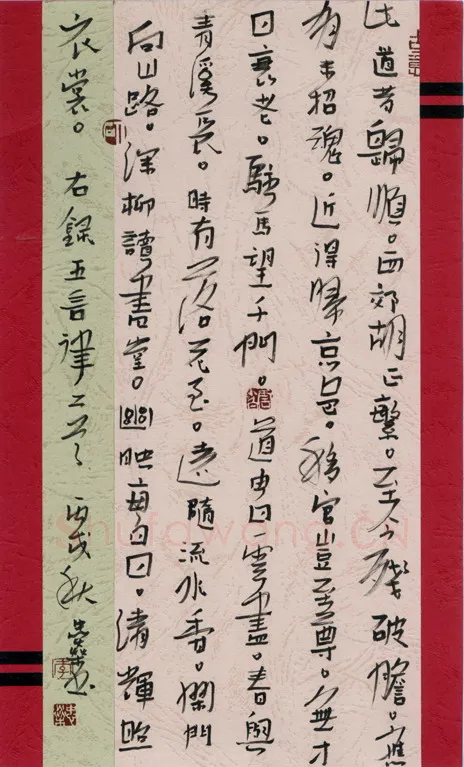 此道昔歸順。西郊胡正繁。至今殘破膽。應
有未招魂。近得歸京邑。移官豈至尊。無才
日衰老。駐馬望千門。道由白雲盡。春與
青溪長。時有落花至。遠隨流水香。閑門
向山路。深柳讀書堂。幽映每白日。清輝照
衣裳。右錄五言律二首 丙戌秋 書
Shufawang.CN